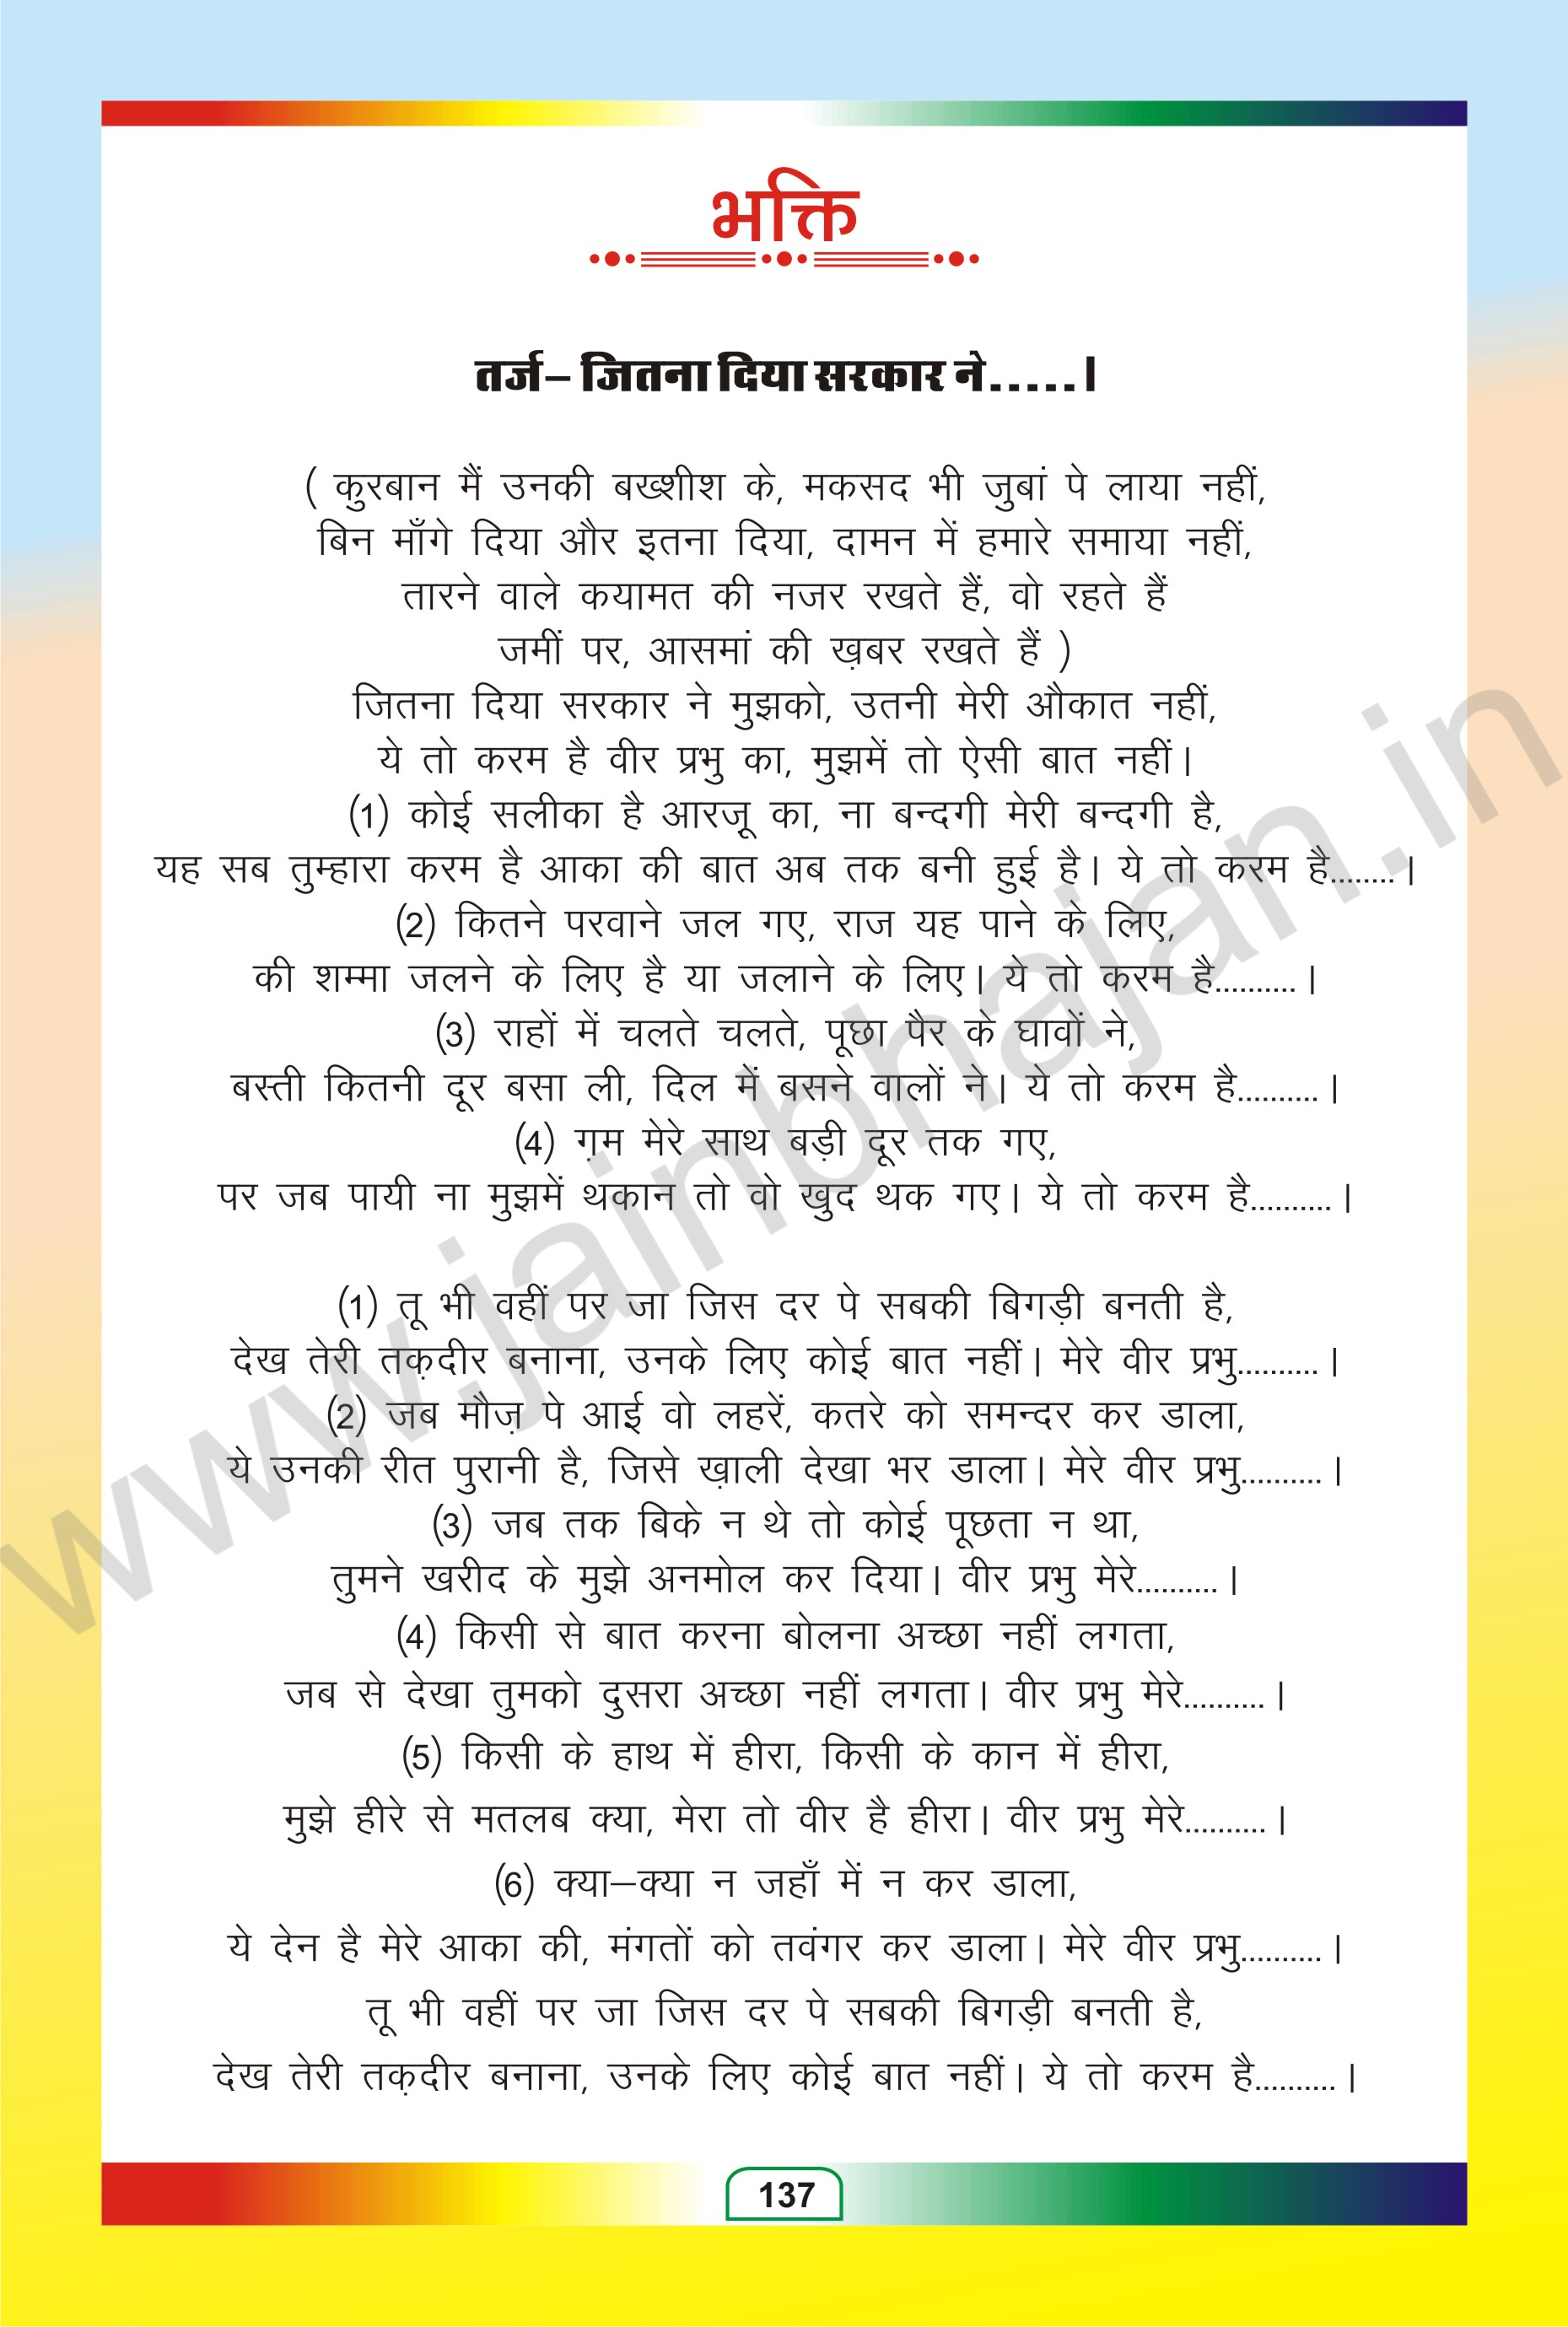 भक्ति
तर्ज– जितना दिया सरकार ने.....।
( कुरबान मैं उनकी बख्शीश के, मकसद भी जुबां पे लाया नहीं,
बिन माँगे दिया और इतना दिया, दामन में हमारे समाया नहीं,
तारने वाले कयामत की नजर रखते हैं, वो रहते हैं
जमीं पर, आसमां की ख़बर रखते हैं )
जितना दिया सरकार ने मुझको, उतनी मेरी औकात नहीं,
ये तो करम है वीर प्रभु का, मुझमें तो ऐसी बात नहीं।
(1) कोई सलीका है आरजू का, ना बन्दगी मेरी बन्दगी है,
यह सब तुम्हारा करम है आका की बात अब तक बनी हुई है। ये तो करम है........।
(2) कितने परवाने जल गए, राज यह पाने के लिए,
की शम्मा जलने के लिए है या जलाने के लिए। ये तो करम है..........।
(3) राहों में चलते चलते, पूछा पैर के घावों ने,
बस्ती कितनी दूर बसा ली, दिल में बसने वालों ने। ये तो करम है..........।
(4) ग़म मेरे साथ बड़ी दूर तक गए,
पर जब पायी ना मुझमें थकान तो वो खुद थक गए। ये तो करम है..........।
(1) तू भी वहीं पर जा जिस दर पे सबकी बिगड़ी बनती है,
देख तेरी तक़दीर बनाना, उनके लिए कोई बात नहीं। मेरे वीर प्रभु..........।
(2) जब मौज़ पे आई वो लहरें, कतरे को समन्दर कर डाला,
ये उनकी रीत पुरानी है, जिसे ख़ाली देखा भर डाला। मेरे वीर प्रभु..........।
(3) जब तक बिके न थे तो कोई पूछता न था,
तुमने खरीद के मुझे अनमोल कर दिया। वीर प्रभु मेरे..........।
(4) किसी से बात करना बोलना अच्छा नहीं लगता,
जब से देखा तुमको दुसरा अच्छा नहीं लगता। वीर प्रभु मेरे..........।
(5) किसी के हाथ में हीरा, किसी के कान में हीरा,
मुझे हीरे से मतलब क्या, मेरा तो वीर है हीरा। वीर प्रभु मेरे..........।
(6) क्या–क्या न जहाँ में न कर डाला,
ये देन है मेरे आका की, मंगतों को तवंगर कर डाला। मेरे वीर प्रभु..........।
तू भी वहीं पर जा जिस दर पे सबकी बिगड़ी बनती है,
देख तेरी तक़दीर बनाना, उनके लिए कोई बात नहीं। ये तो करम है..........।
137
www.jainbhajan.in